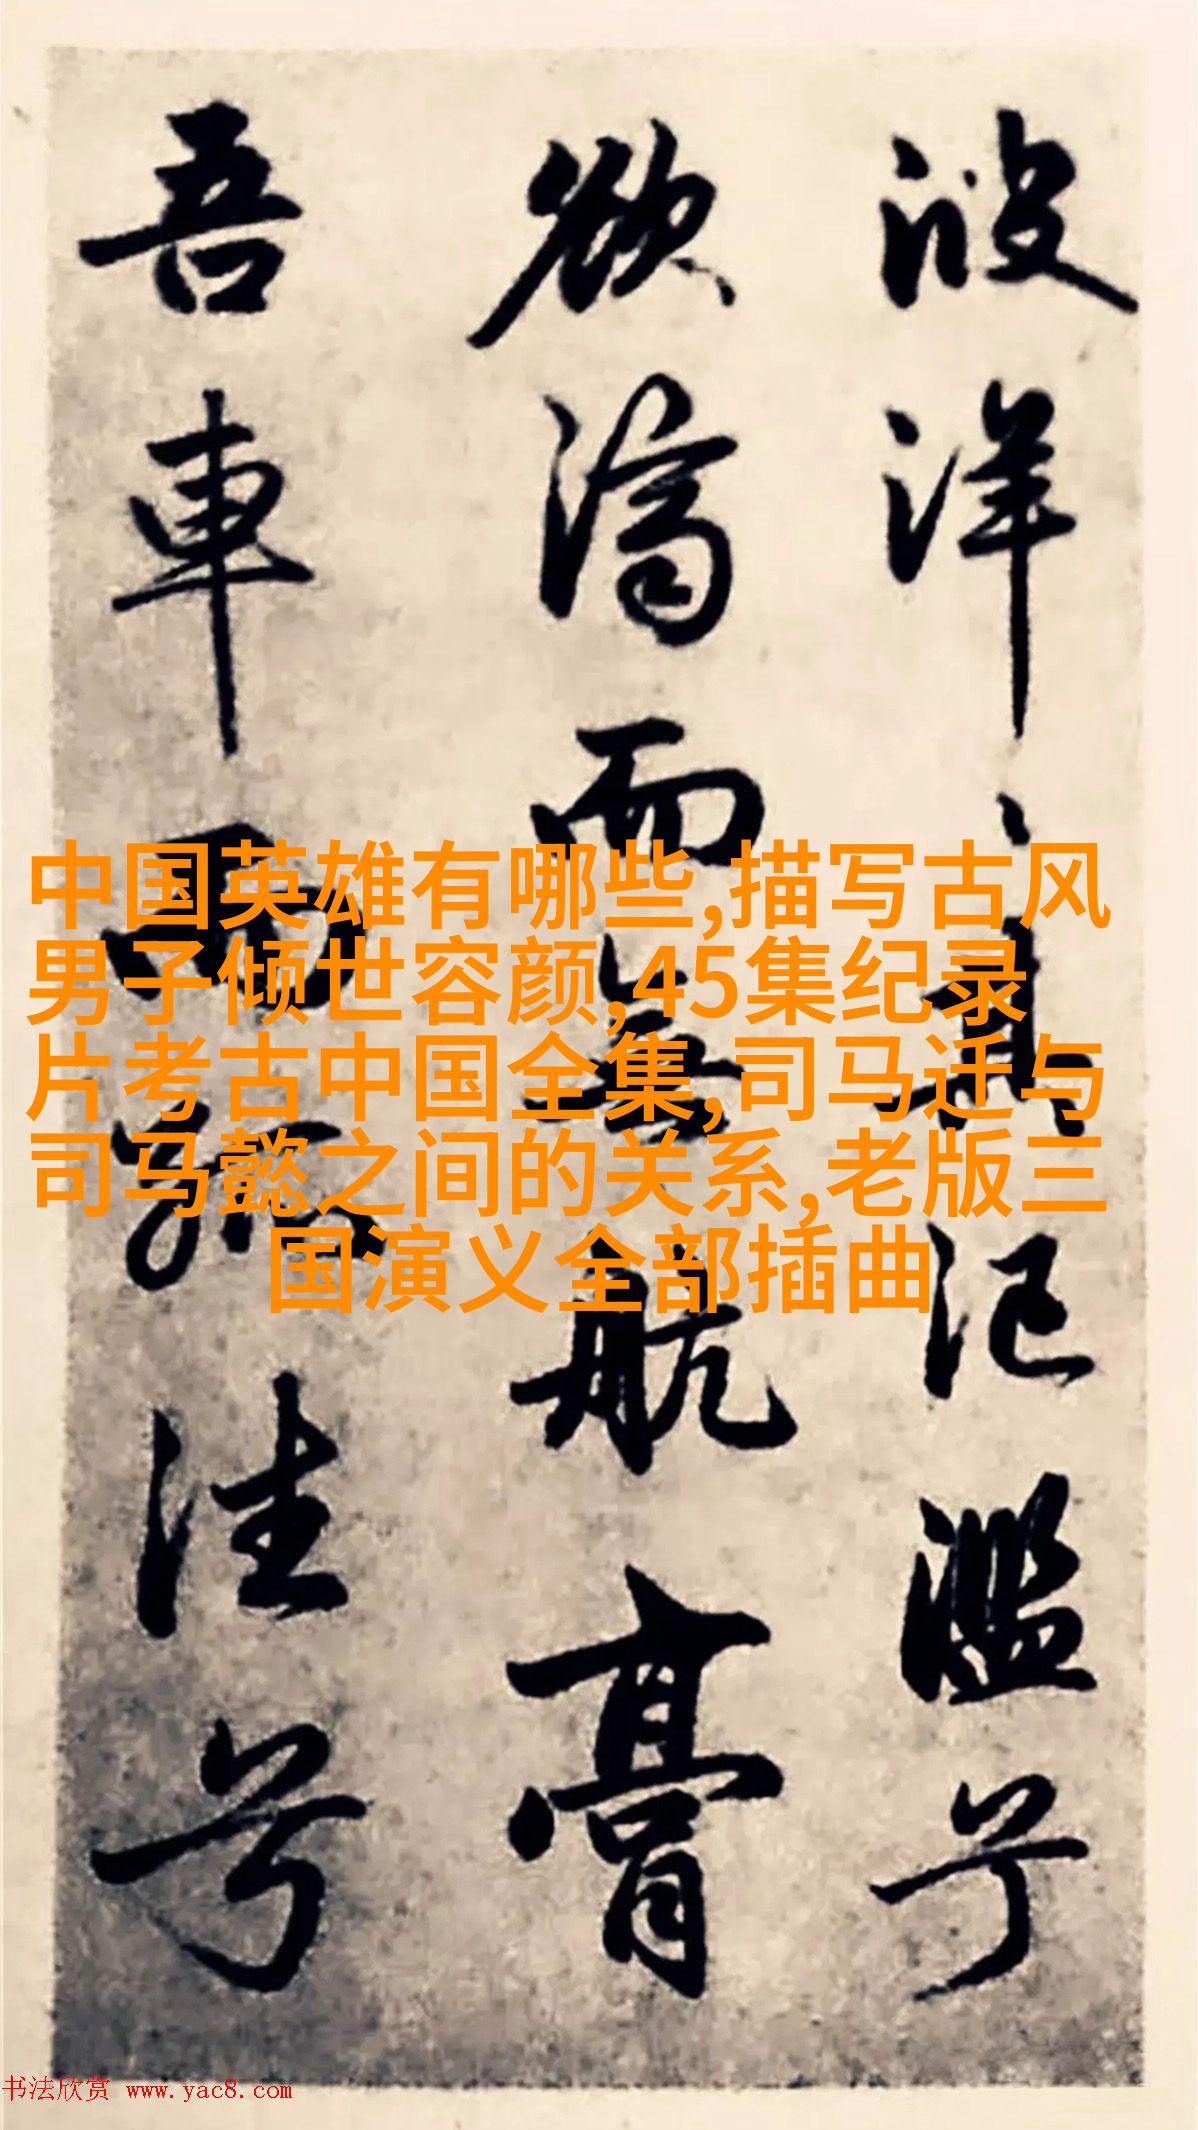 波洋〻其氾濫兮
欲濟而無航膏
吾車而孤往兮
中国英雄有哪些,描写古风
男子倾世容颜,45集纪录
片考古中国全集,司马迁与
司马懿之间的关系,老版三
国演义全部插曲
书法欣赏 www.yac8.com